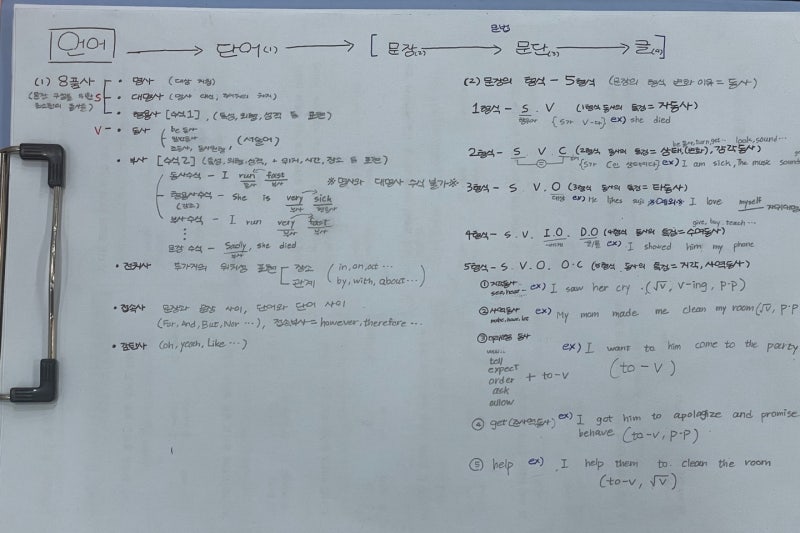 문법
언어 → 단어(1) → [ 문장(2) → 문단(3) → 글(4) ]
(1) 8품사
• 명사 (대상 지칭)
S • 대명사
• 형용사 [수식1], (특성, 외형, 성격 등 표현)
V • 동사 (서술어)
be 동사
일반동사
• 부사 [수식2] (특성, 외형, 성격, + 위치, 시간, 장소 등 표현)
동사수식 - I run fast
동사 부사
※ 명사와 대명사 수식 불가 ※
형용사수식 - She is very sick
부사 형용사
부사수식 - I run very fast
부사 부사
문장 수식 - Sadly, she died
부사
• 전치사 표현 장소 (in, on, at …
관계 by, with, about…)
• 접속사 문장과 문장 사이, 단어와 단어 사이
(For, And, But, Nor …), 접속부사 = however, therefore …
• 감탄사 (oh, yeah, like …)
(2) 문장의 형식 - 5형식 (문장의 형식 변화 이유 = 동사)
1형식 - S. V (1형식 동사의 특징 = 자동사)
(S가 V-다) ex) she died
look, sound…
2형식 - S V C (2형식 동사의 특징 = 상태(변화), 감각동사)
ex) I am sick, The music sounds
3형식 - S. V. O (3형식 동사의 특징 = 타동사)
ex) He likes I love myself
give, buy, teach…
4형식 - S. V. I.O. D.O (4형식 동사의 특징 = 수여동사)
-에게 -을/를 ex) I showed him my phone
5형식 - S. V. O. O.C (5형식 동사의 특징 = 지각, 사역동사)
① 지각동사 ex) I saw her cry. (√v, V-ing, P.P)
see, hear…
② 사역동사 ex) My mom made me clean my room (√v, P.P
make, have, let
③ 동사
want… ex) I want to him come to the party
tell
expect + to-v (to - V)
order
ask
allow
④ get (준사역동사) ex) I got him to apologize and promise
behave (to-v, P.P)
⑤ help ex) I help them to clean the room
(to-v, √v)